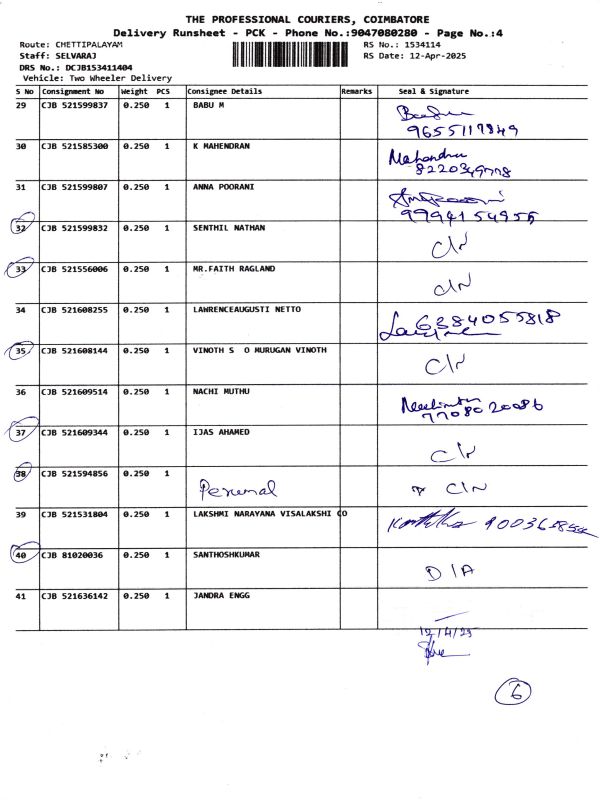 THE PROFESSIONAL COURIERS, COIMBATORE
Delivery Runsheet - PCK - Phone No.:9047080280 - Page No.:4
Route: CHETTIPALAYAM RS No.: 1534114
Staff: SELVARAJ RS Date: 12-Apr-2025
DRS No.: DCJB153411404
Vehicle: Two Wheeler Delivery
S No Consignment No Weight PCS Consignee Details Remarks Seal & Signature
29 CJB 521599837 0.250 1 BABU M
9655117849
30 CJB 521585300 0.250 1 K MAHENDRAN Mahendra
8220349778
31 CJB 521599807 0.250 1 ANNA POORANI
9994154955
32 CJB 521599832 0.250 1 SENTHIL NATHAN C/N
33 CJB 521556006 0.250 1 MR.FAITH RAGLAND C/N
34 CJB 521608255 0.250 1 LAWRENCEAUGUSTI NETTO 6384055818
35 CJB 521608144 0.250 1 VINOTH S O MURUGAN VINOTH C/N
36 CJB 521609514 0.250 1 NACHI MUTHU
7708020086
37 CJB 521609344 0.250 1 IJAS AHAMED C/N
38 CJB 521594856 0.250 1 Perumal C/N
39 CJB 521531804 0.250 1 LAKSHMI NARAYANA VISALAKSHI CO
40 CJB 81020036 0.250 1 SANTHOSHKUMAR D/A
41 CJB 521636142 0.250 1 JANDRA ENGG
12/4/25
6